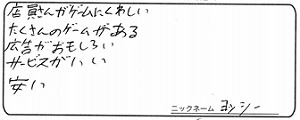 店員さんがゲームにくわしい
たくさんのゲームがある
広告がおもしろい
サービスがいい
安い
ニックネーム ヨッシー